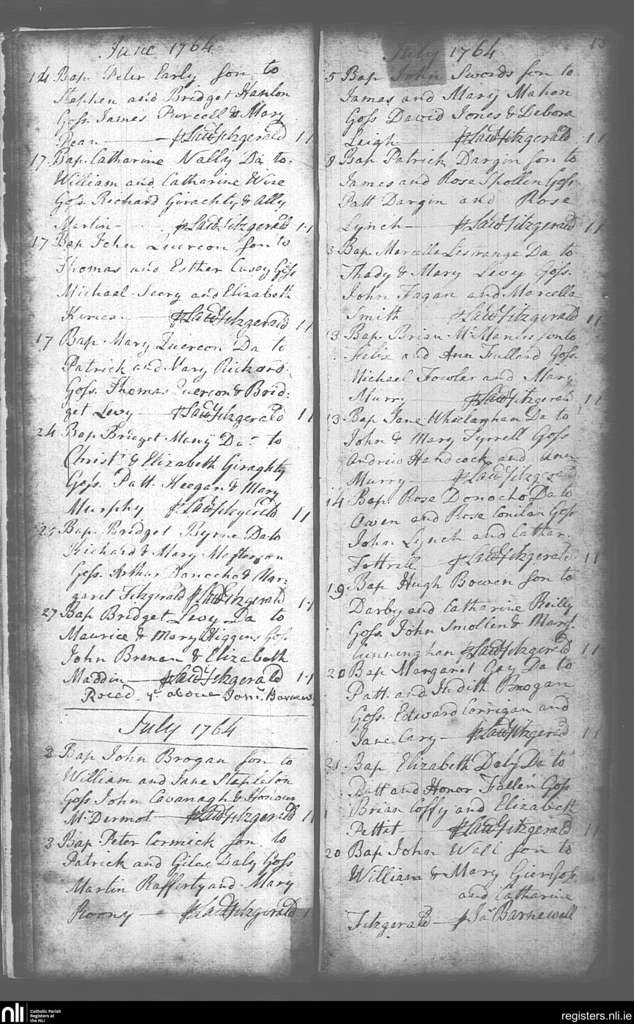 June 1764
14 Bap. Peter Early son to
Stephen and Bridget Hanlon
Goss James Purcell & Mary
Dean — p Lawd Fitzgerald 1 1
17 Bap. Catharine Nally Da to
William and Catharine Wire
Goss Richard Geraghty & Ally
Martin — p Lawd Fitzgerald 1 1
17 Bap. John Quercon son to
Thomas and Esther Casey Goss
Michael Seery and Elizabeth
p Lawd Fitzgerald 1 1
17 Bap. Mary Quercon Da to
Patrick and Mary Rickard
Goss. Thomas Quercon & Brid-
get Levy — p Lawd Fitzgerald 1 1
24 Bap. Bridget Da to
Christr & Elizabeth Giraghty
Goss. Patt. Heegan & Mary
Murphy p Lawd Fitzgerald 1 1
Bap. Bridget Byrne Da to
Richard & Mary
Goss. Arthur & Mar-
garet Fitzgerald p Lawd Fitzgerald 1 1
27 Bap Bridget Levy Da to
Maurice & Mary Higgins Goss
John Brenan & Elizabeth
Maddin — p Lawd Fitzgerald 1 1
Reced. ye above
July 1764
Bap. John Brogan son to
William and Jane Stapleton
Goss John Cavanagh & Honour
McDermot — p Lawd Fitzgerald 1 1
3 Bap Peter Cormick son to
Patrick and Daly Goss
Martin Rafferty and Mary
Roony — p Lawd Fitzgerald 1
July 1764
5 Bap John Swords son to
James and Mary Mahon
Goss David Jones & Debora
Leigh p Lawd Fitzgerald 1 1
8 Bap Patrick Dargin son to
James and Rose Spollin Goss
Patt Dargin and Rose
Lynch — p Lawd Fitzgerald 1 1
Bap. Marcella Lestrange Da to
Thady & Mary Levy Goss.
John Fagan and Marcella
Smith p Lawd Fitzgerald 1 1
13 Bap. Brian McManus son to
Felix and Ann Fullard Goss
Michael Fowler and Mary
Murry — p Lawd Fitzgerald 1 1
13 Bap Jane Whelaghan Da to
John & Mary Tyrrell Goss
Andrew Handcock and Ann
Murry — p Lawd Fitzgerald
14 Bap. Rose Donocho Da to
Owen and Rose Conilan Goss
John Lynch and Cathar.
p Lawd Fitzgerald 1 1
19 Bap Hugh Bowen son to
Darby and Catharine Reilly
Goss John Smollen & Marg.
Cunningham p Lawd Fitzgerald 1 1
20 Bap Margaret Gay Da to
Patt. and Judith
Goss. Edward Corrigan and
Jane Cary — p Lawd Fitzgerald 1 1
Bap Elizabeth Daly Da to
Patt and Honor Fallin Goss
Brian Coffy and Elizabeth
Pettit — p Lawd Fitzgerald 1 1
20 Bap John Wall son to
William & Mary
and Catharine
Fitzgerald — p Jas Barnewell
nli
Catholic Parish
Registers at
the NLI
registers.nli.ie